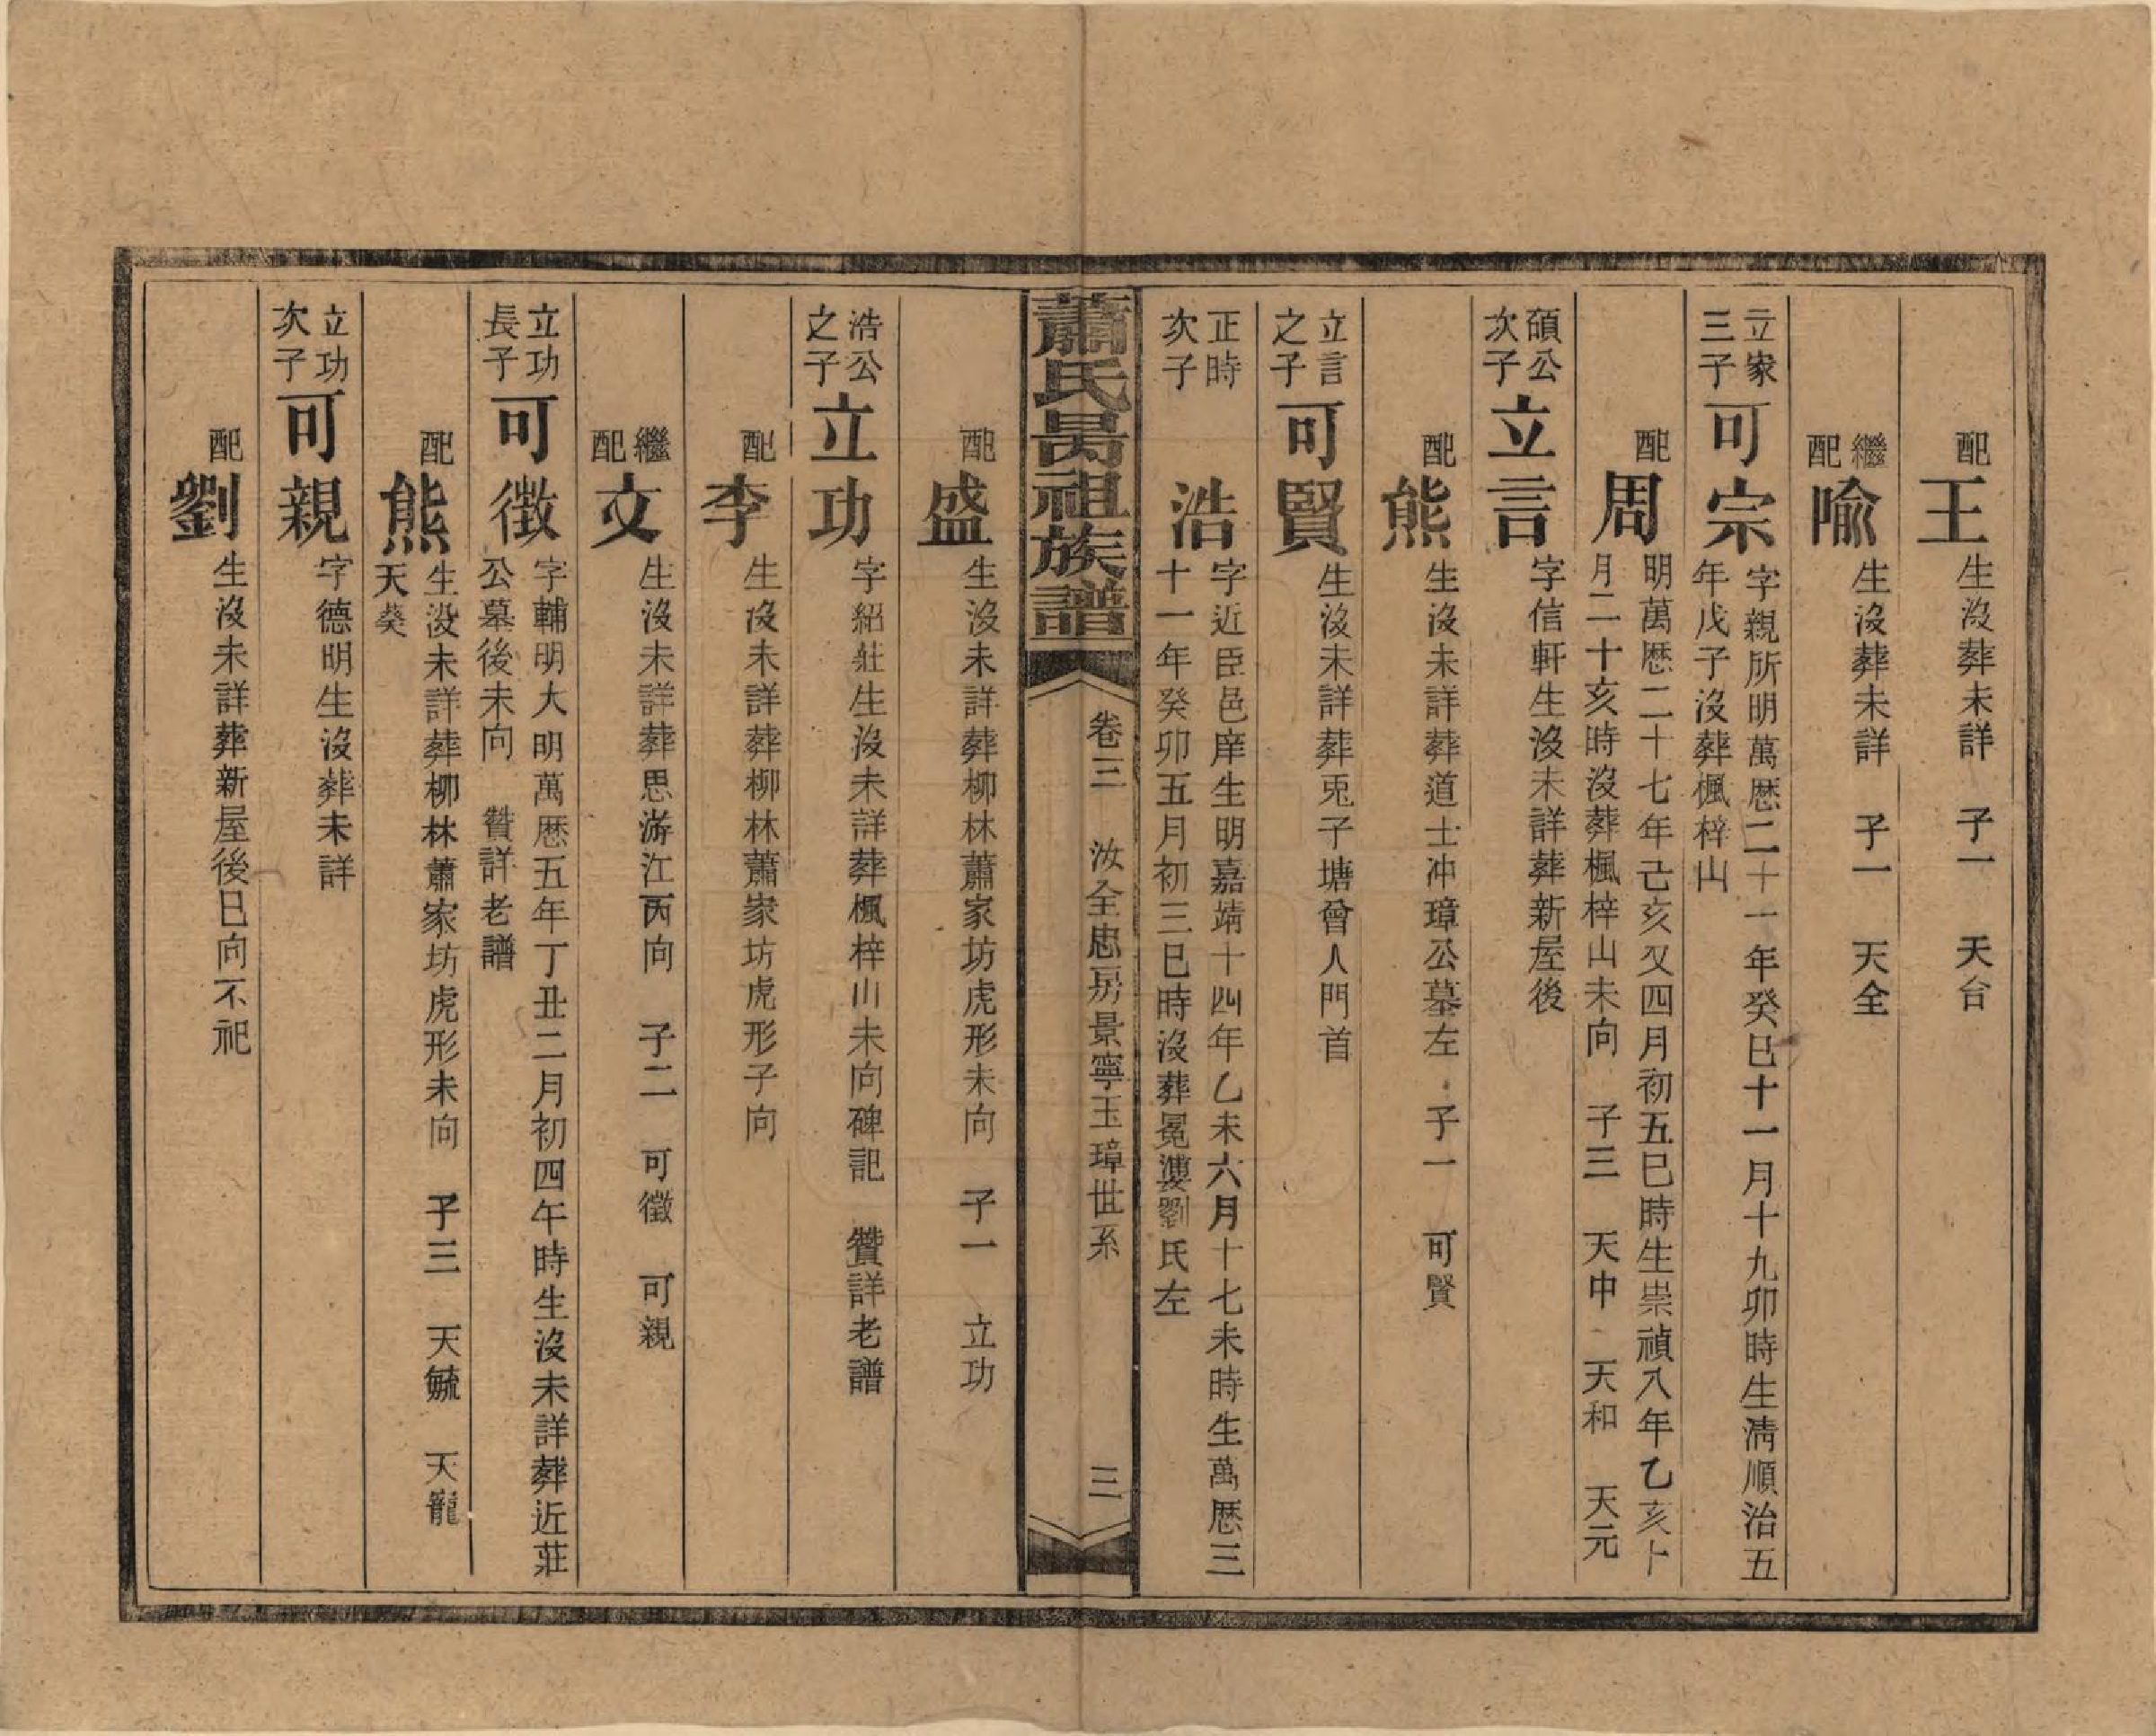 配王生沒葬未詳　子一　天台
繼配喻生沒葬未詳　子一　天全
立家三子可宗字親所明萬厯二十一年癸巳十一月十九卯時生淸順治五
年戊子沒葬楓梓山
配周明萬厯二十七年己亥又四月初五巳時生崇禎八年乙亥十
月二十亥時沒葬楓梓山未向　子三　天中　天和　天元
碩公次子立言字信軒生沒未詳葬新屋後
配熊生沒未詳葬道士冲璋公墓左　子一　可賢
立言之子可賢生沒未詳葬兎子塘曾人門首
正時次子浩字近臣邑庠生明嘉靖十四年乙未六月十七未時生萬厯三
十一年癸卯五月初三巳時沒葬冕漊劉氏左
蕭氏昺祖族譜　卷三　汝全忠房景寧玉璋世系　三
配盛生沒未詳葬柳林蕭家坊虎形未向　子一　立功
浩公之子立功字紹莊生沒未詳葬楓梓山未向碑記　贊詳老譜
配李生沒未詳葬柳林蕭家坊虎形子向
繼配文生沒未詳葬思游江丙向　子二　可徵　可親
立功長子可徵字輔明大明萬厯五年丁丑二月初四午時生沒未詳葬近莊
公墓後未向　贊詳老譜
配熊生沒未詳葬柳林蕭家坊虎形未向　子三　天毓　天龍
天癸
立功次子可親字德明生沒葬未詳
配劉生沒未詳葬新屋後巳向不祀